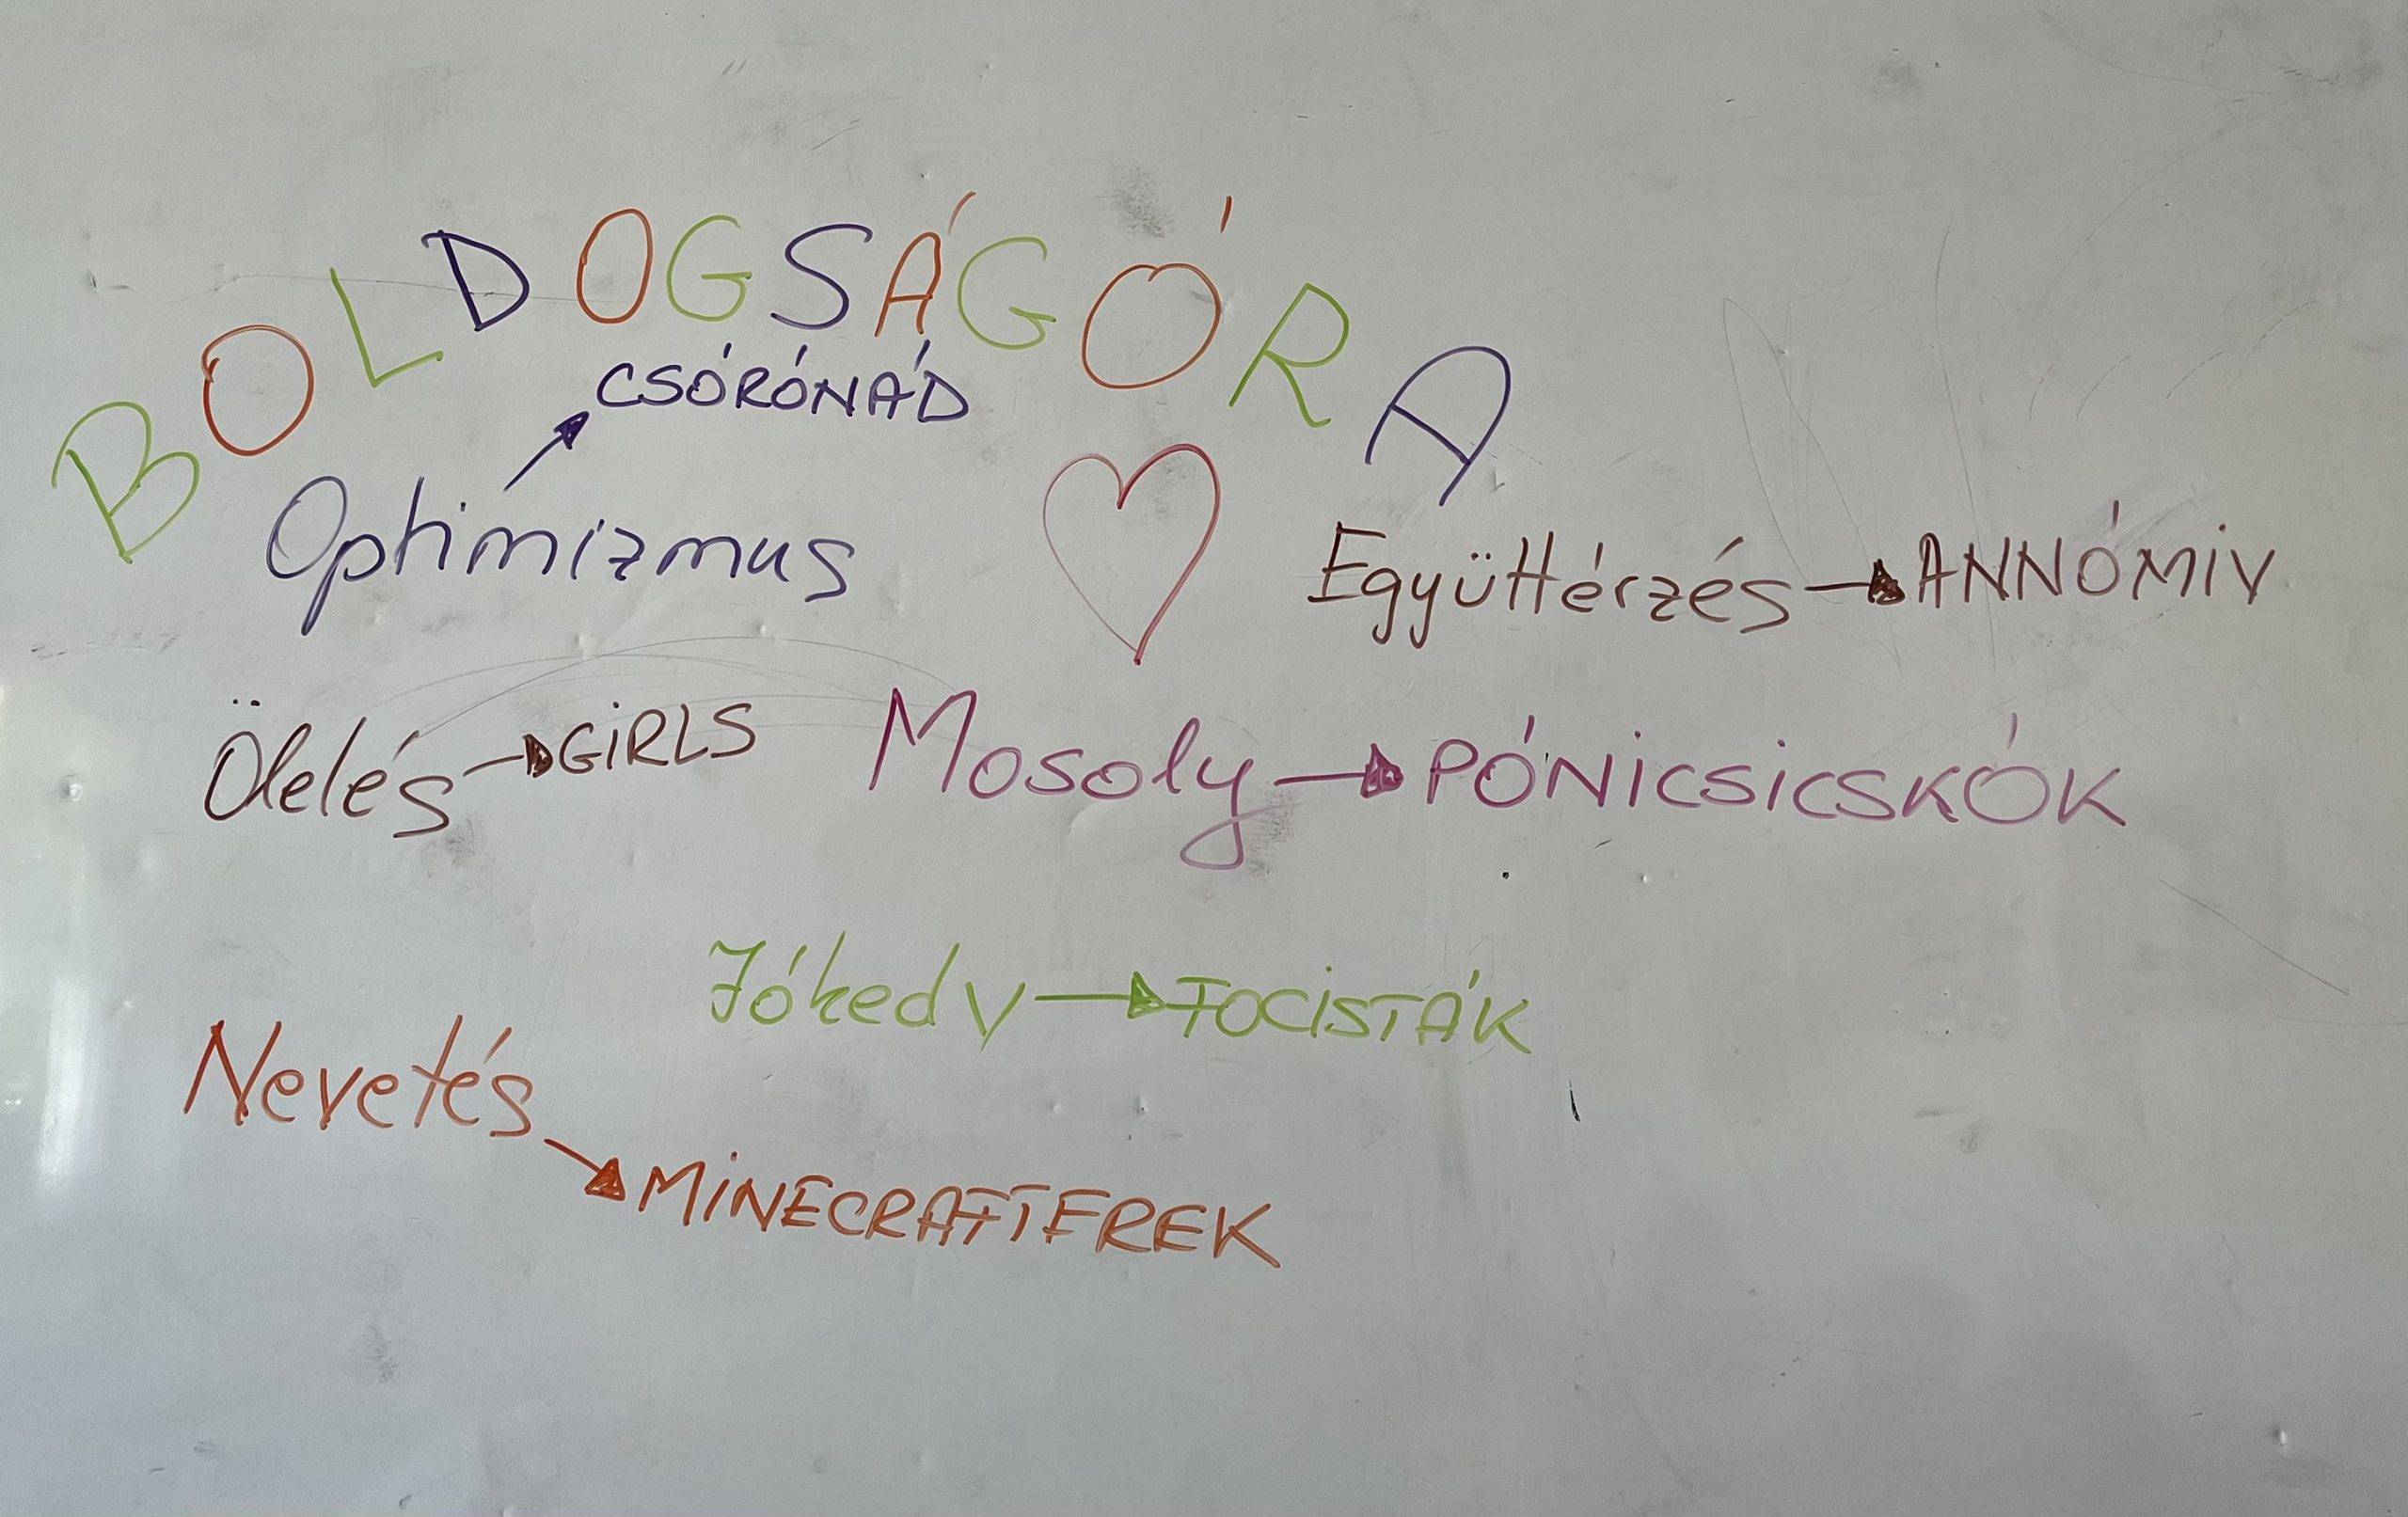 BOLDOGSÁGÓRA
CSÓRÓNÁD
Optimizmus
Együttérzés → ANNÓMIV
Ölelés → GIRLS
Mosoly → PÓNICSICSKÓK
Jókedv → FOCISTÁK
Nevetés
→ MINECRAFTEREK